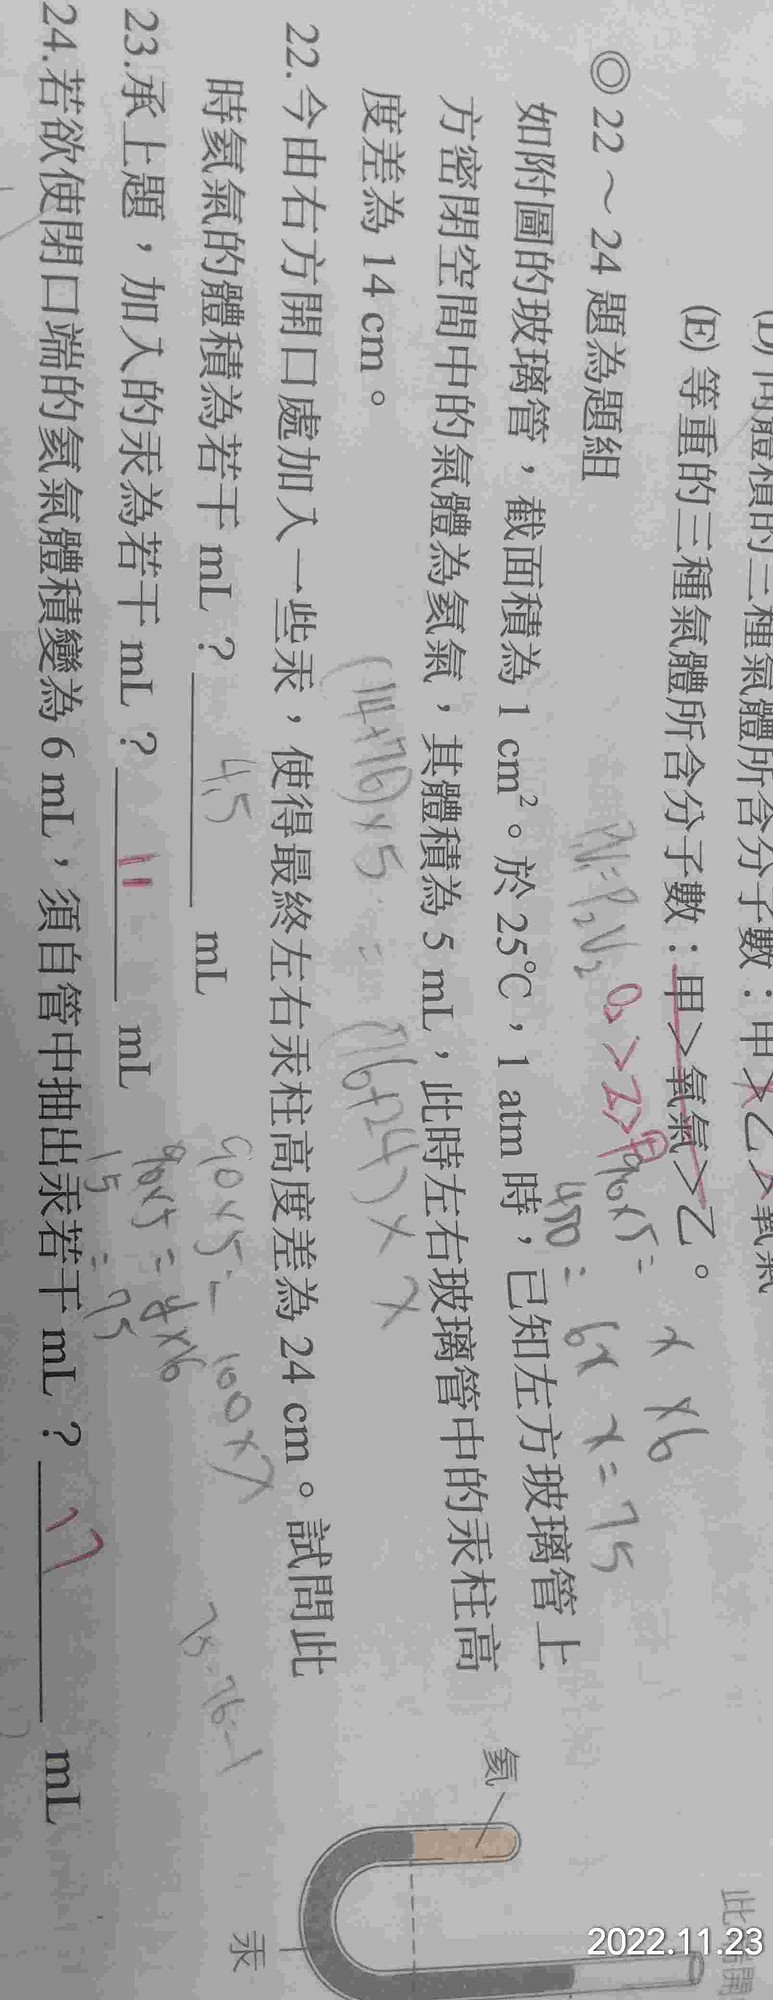 (D) 同體積的三種氣體所含分子數：甲＞乙＞氧氣
(E) 等重的三種氣體所含分子數：甲＞氧氣＞乙。
O₂＞乙＞甲
◎22～24 題為題組
P₁V₁=P₂V₂
90×5=
x×6
450=6x x=75
如附圖的玻璃管，截面積為 1 cm²。於 25℃，1 atm 時，已知左方玻璃管上
方密閉空間中的氣體為氦氣，其體積為 5 mL，此時左右玻璃管中的汞柱高
度差為 14 cm。
(14+76)×5=(76+24)×x
22.今由右方開口處加入一些汞，使得最終左右汞柱高度差為 24 cm。試問此
時氦氣的體積為若干 mL？ 4.5 mL
90×5=100×x
23.承上題，加入的汞為若干 mL？ 11 mL
90×5=y×6
15 =75
75-76=-1
24.若欲使閉口端的氦氣體積變為 6 mL，須自管中抽出汞若干 mL？ 17 mL
氦
汞
2022.11.23